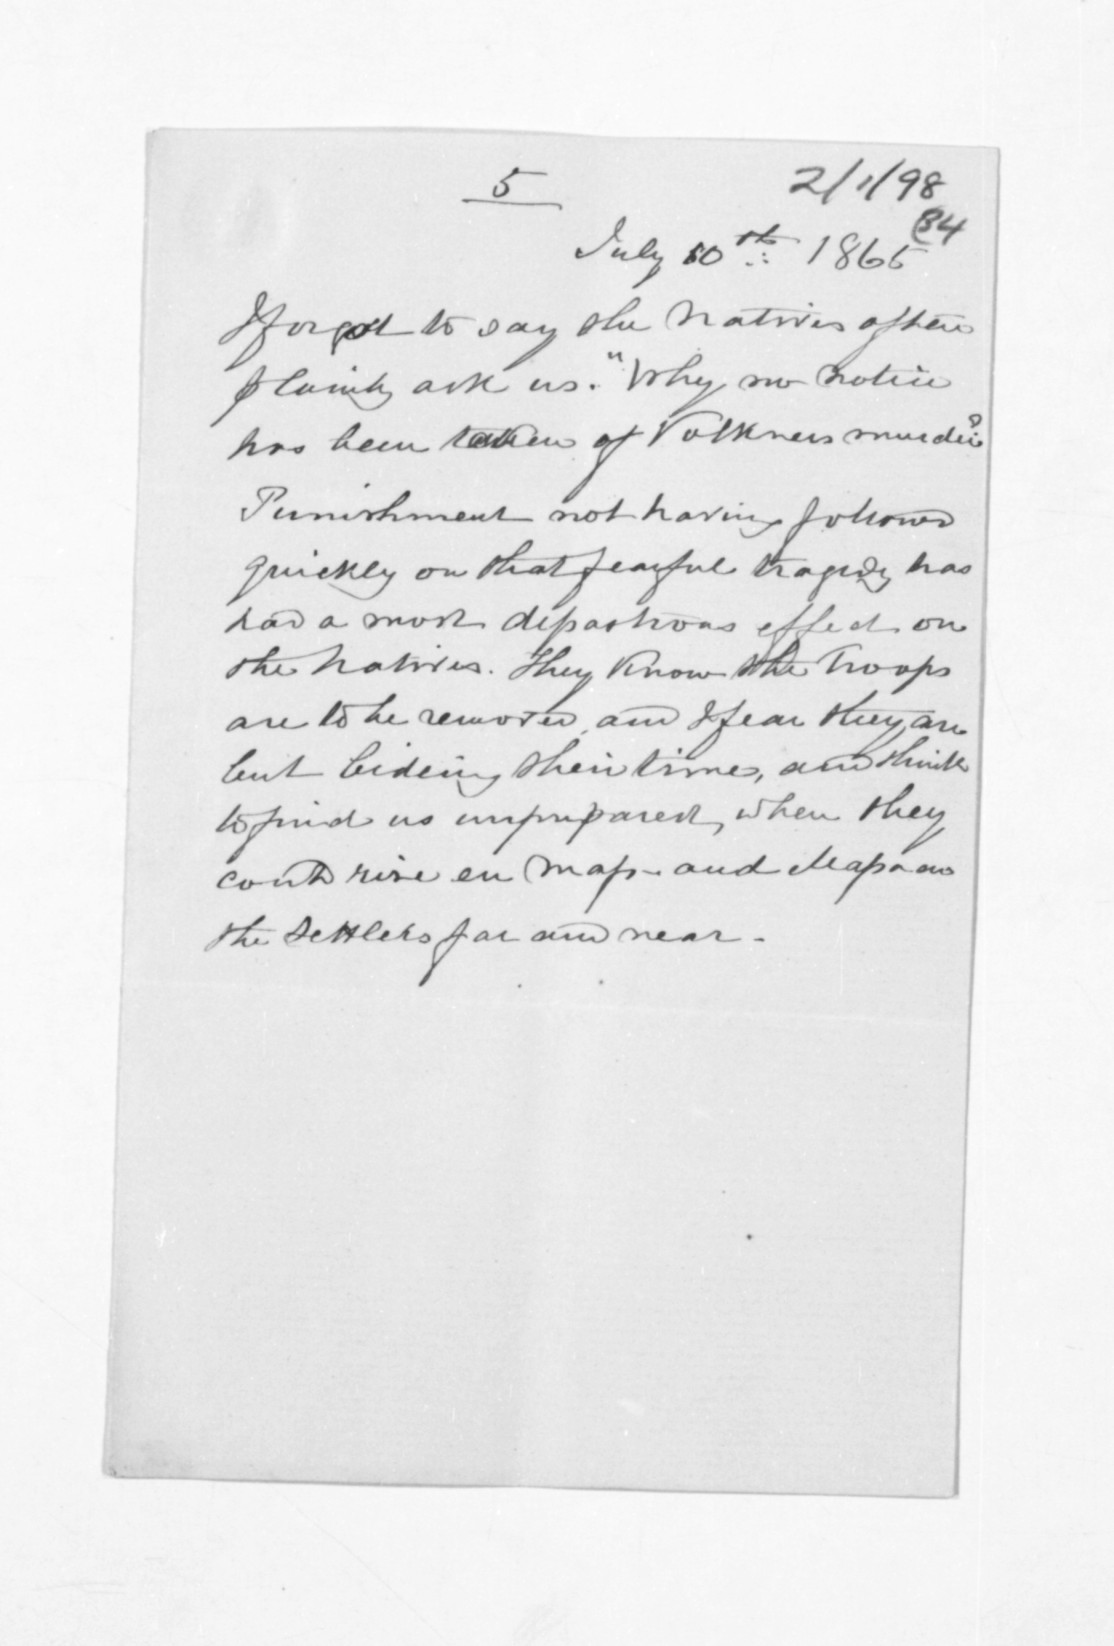 5
2/1/98
84
July 10th 1865
I forgot to say the Natives often
plainly ask us. "Why no notice
has been taken of Volkners murder?"
Punishment not having followed
quickly on that fearful tragedy has
had a most disastrous effect on
the Natives. They know the Troops
are to be removed, and I fear they are
but bideing their time, and think
to find us unprepared, when they
could rise en mass and Massacre
the Settlers far and near.